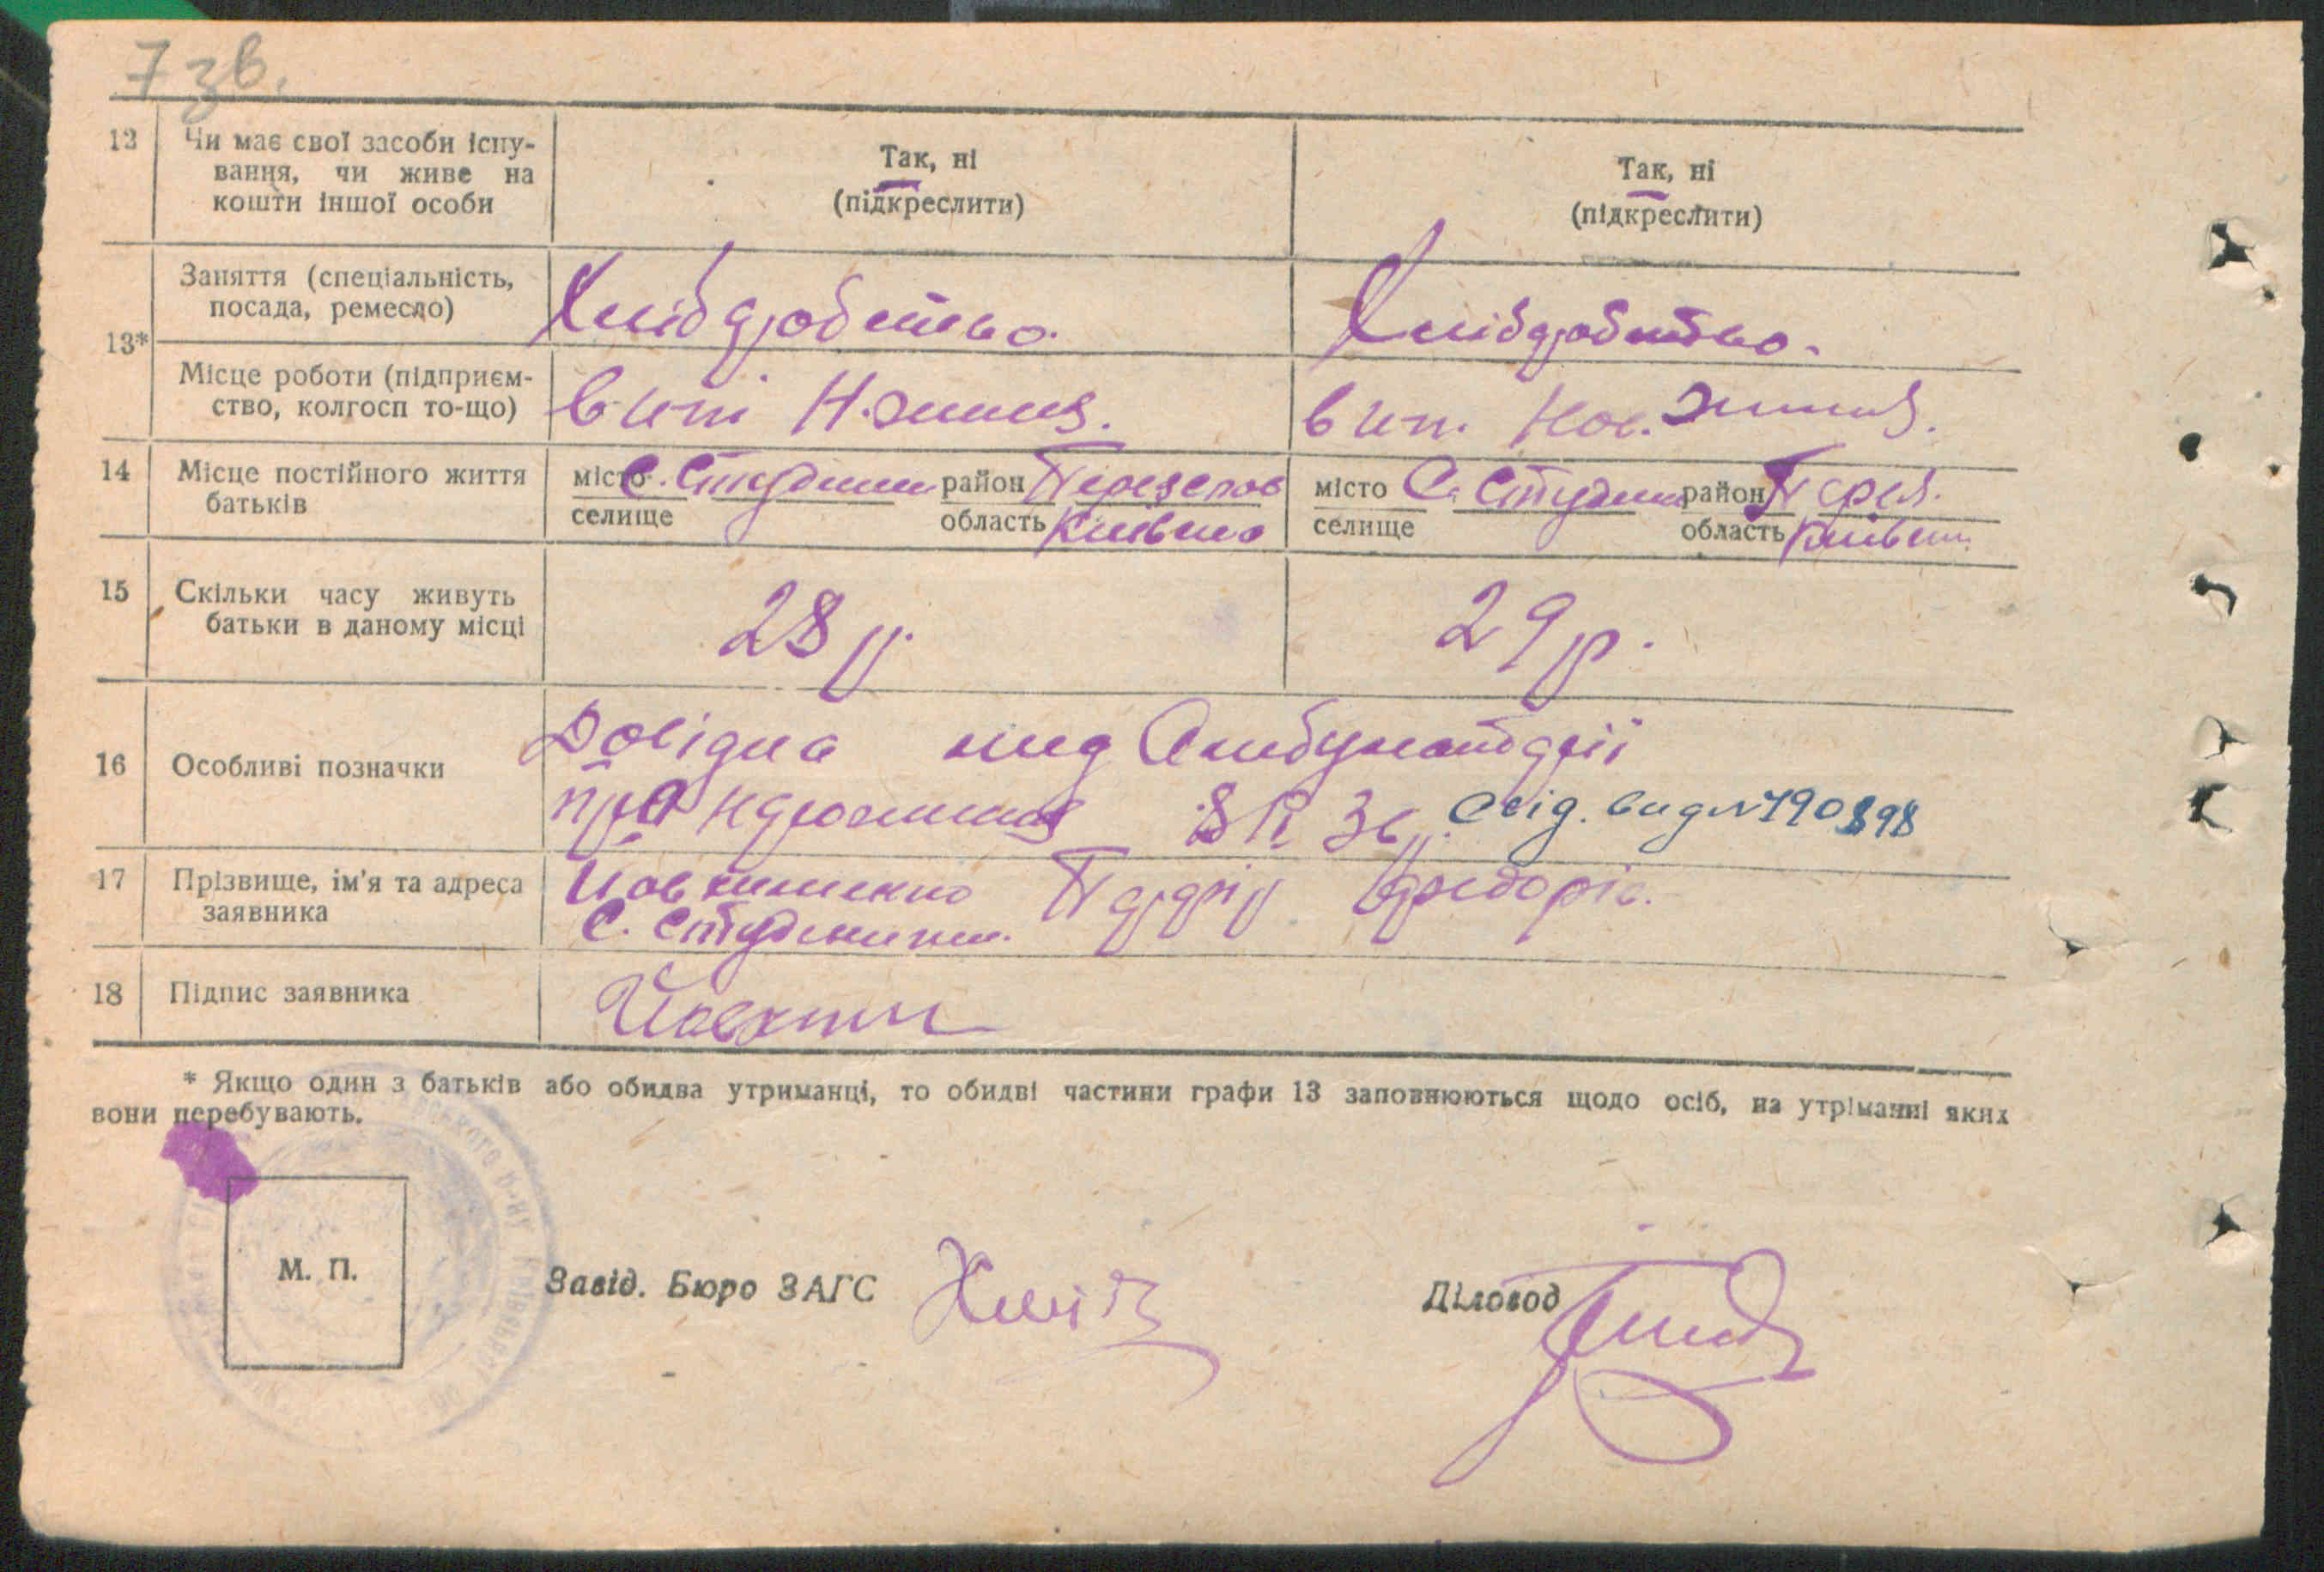 7 зв.
12 Чи має свої засоби існу-
вання, чи живе на
кошти іншої особи
Так, ні
(підкреслити)
Так, ні
(підкреслити)
13*
Заняття (спеціальність,
посада, ремесло)
Хлібробство.
Хлібробство.
Місце роботи (підприєм-
ство, колгосп то-що)
в арт. Н. життя.
в арт. Нов. життя.
14 Місце постійного життя
батьків
місто с. Студеники район Переяслов
селище область Київська
місто с. Студеники район Переяс.
селище область Київськ.
15 Скільки часу живуть
батьки в даному місці
28 р.
29 р.
16 Особливі позначки
Довідка від Амбулаторії
про народження 8 IX 36 р. Свід. вид №790898
17 Прізвище, ім'я та адреса
заявника
с. Студеники.
18 Підпис заявника
* Якщо один з батьків або обидва утриманці, то обидві частини графи 13 заповнюються щодо осіб, на утріманні яких
вони перебувають.
М. П.
Завід. Бюро ЗАГС
Діловод